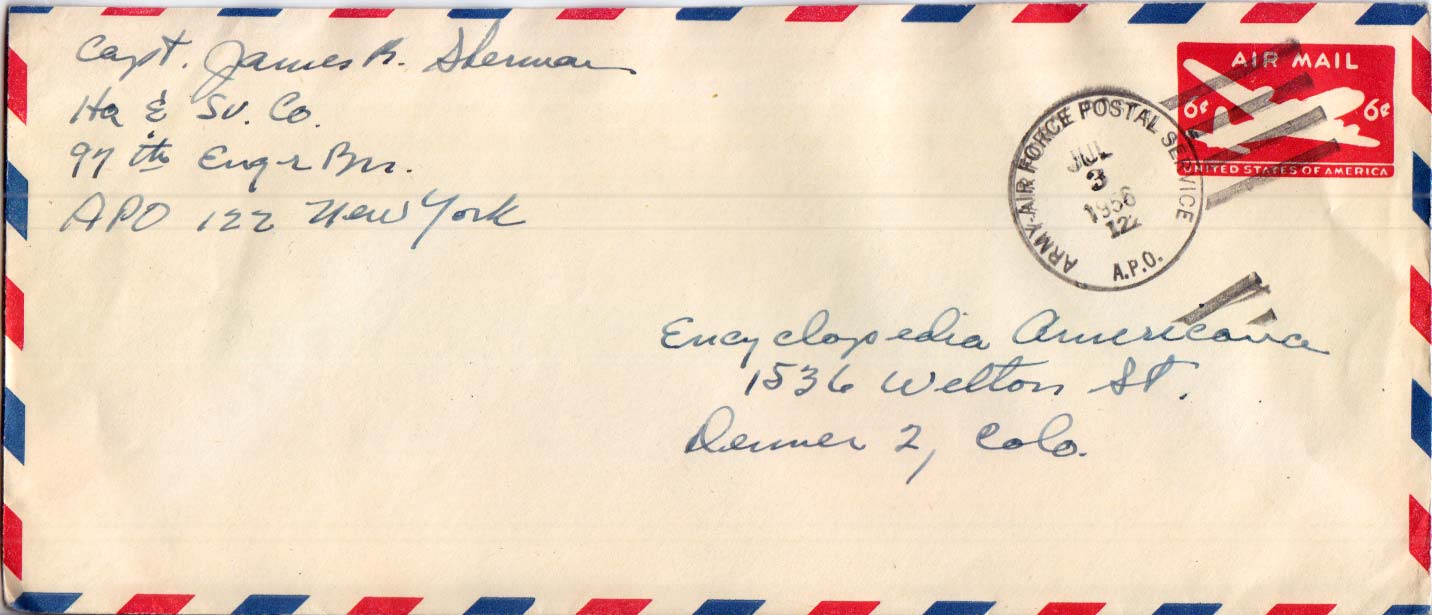 Capt. James R. Sherman
Hq & Sv. Co.
97th Engr Bn.
APO 122 New York
AIR MAIL
6¢ 6¢
UNITED STATES OF AMERICA
ARMY-AIR FORCE POSTAL SERVICE
JUL
3
1956
12
A.P.O.
Encyclopedia Americana
1536 Welton St.
Denver 2, Colo.